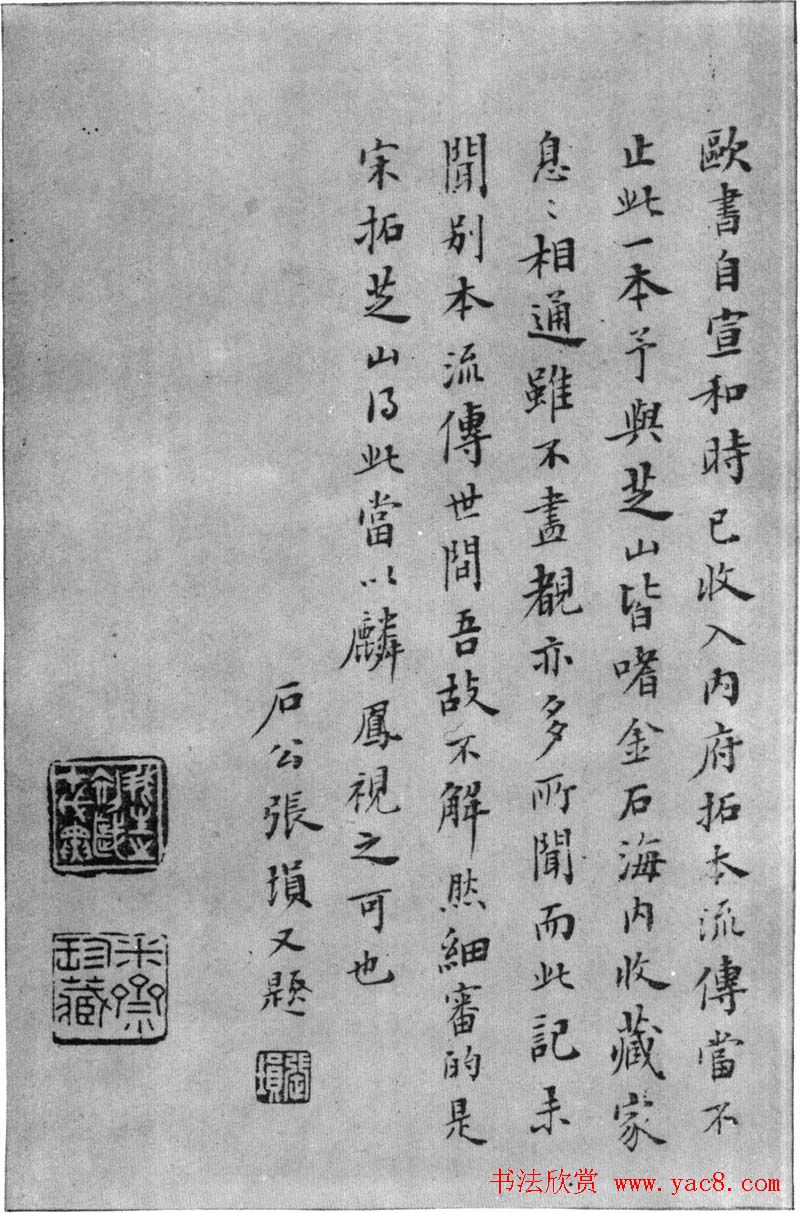 歐書自宣和時已收入內府拓本流傳當不
止此一本予與芝山皆嗜金石海內收藏家
息〻相通雖不盡覩亦多所聞而此記未
聞別本流傳世間吾故不解然細審的是
宋拓芝山得此當以麟鳳視之可也
石公張塤又題
張塤
珍藏
书法欣赏 www.yac8.com